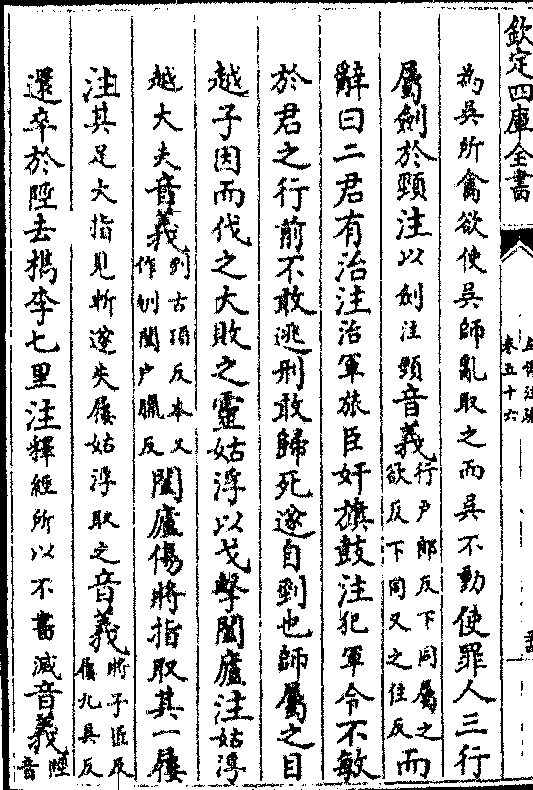 欽定四庫全書
卷五十六
為吳所禽欲使吳師亂取之而吳不動使罪人三行
屬劍於頸注以劍注頸音義行户郎反下同屬之欲反下同又之住反而
辭曰二君有治注治軍旅臣奸旗鼓注犯軍令不敏
於君之行前不敢逃刑敢歸死遂自剄也師屬之目
越子因而伐之大敗之靈姑浮以戈擊闔廬注姑浮
越大夫音義剄古頂反本又作刎闔户臘反闔廬傷將指取其一屨
注其足大指見斬遂失屨姑浮取之音義將子匠反屨九具反
還卒於陘去檇李七里注釋經所以不書滅音義陘音